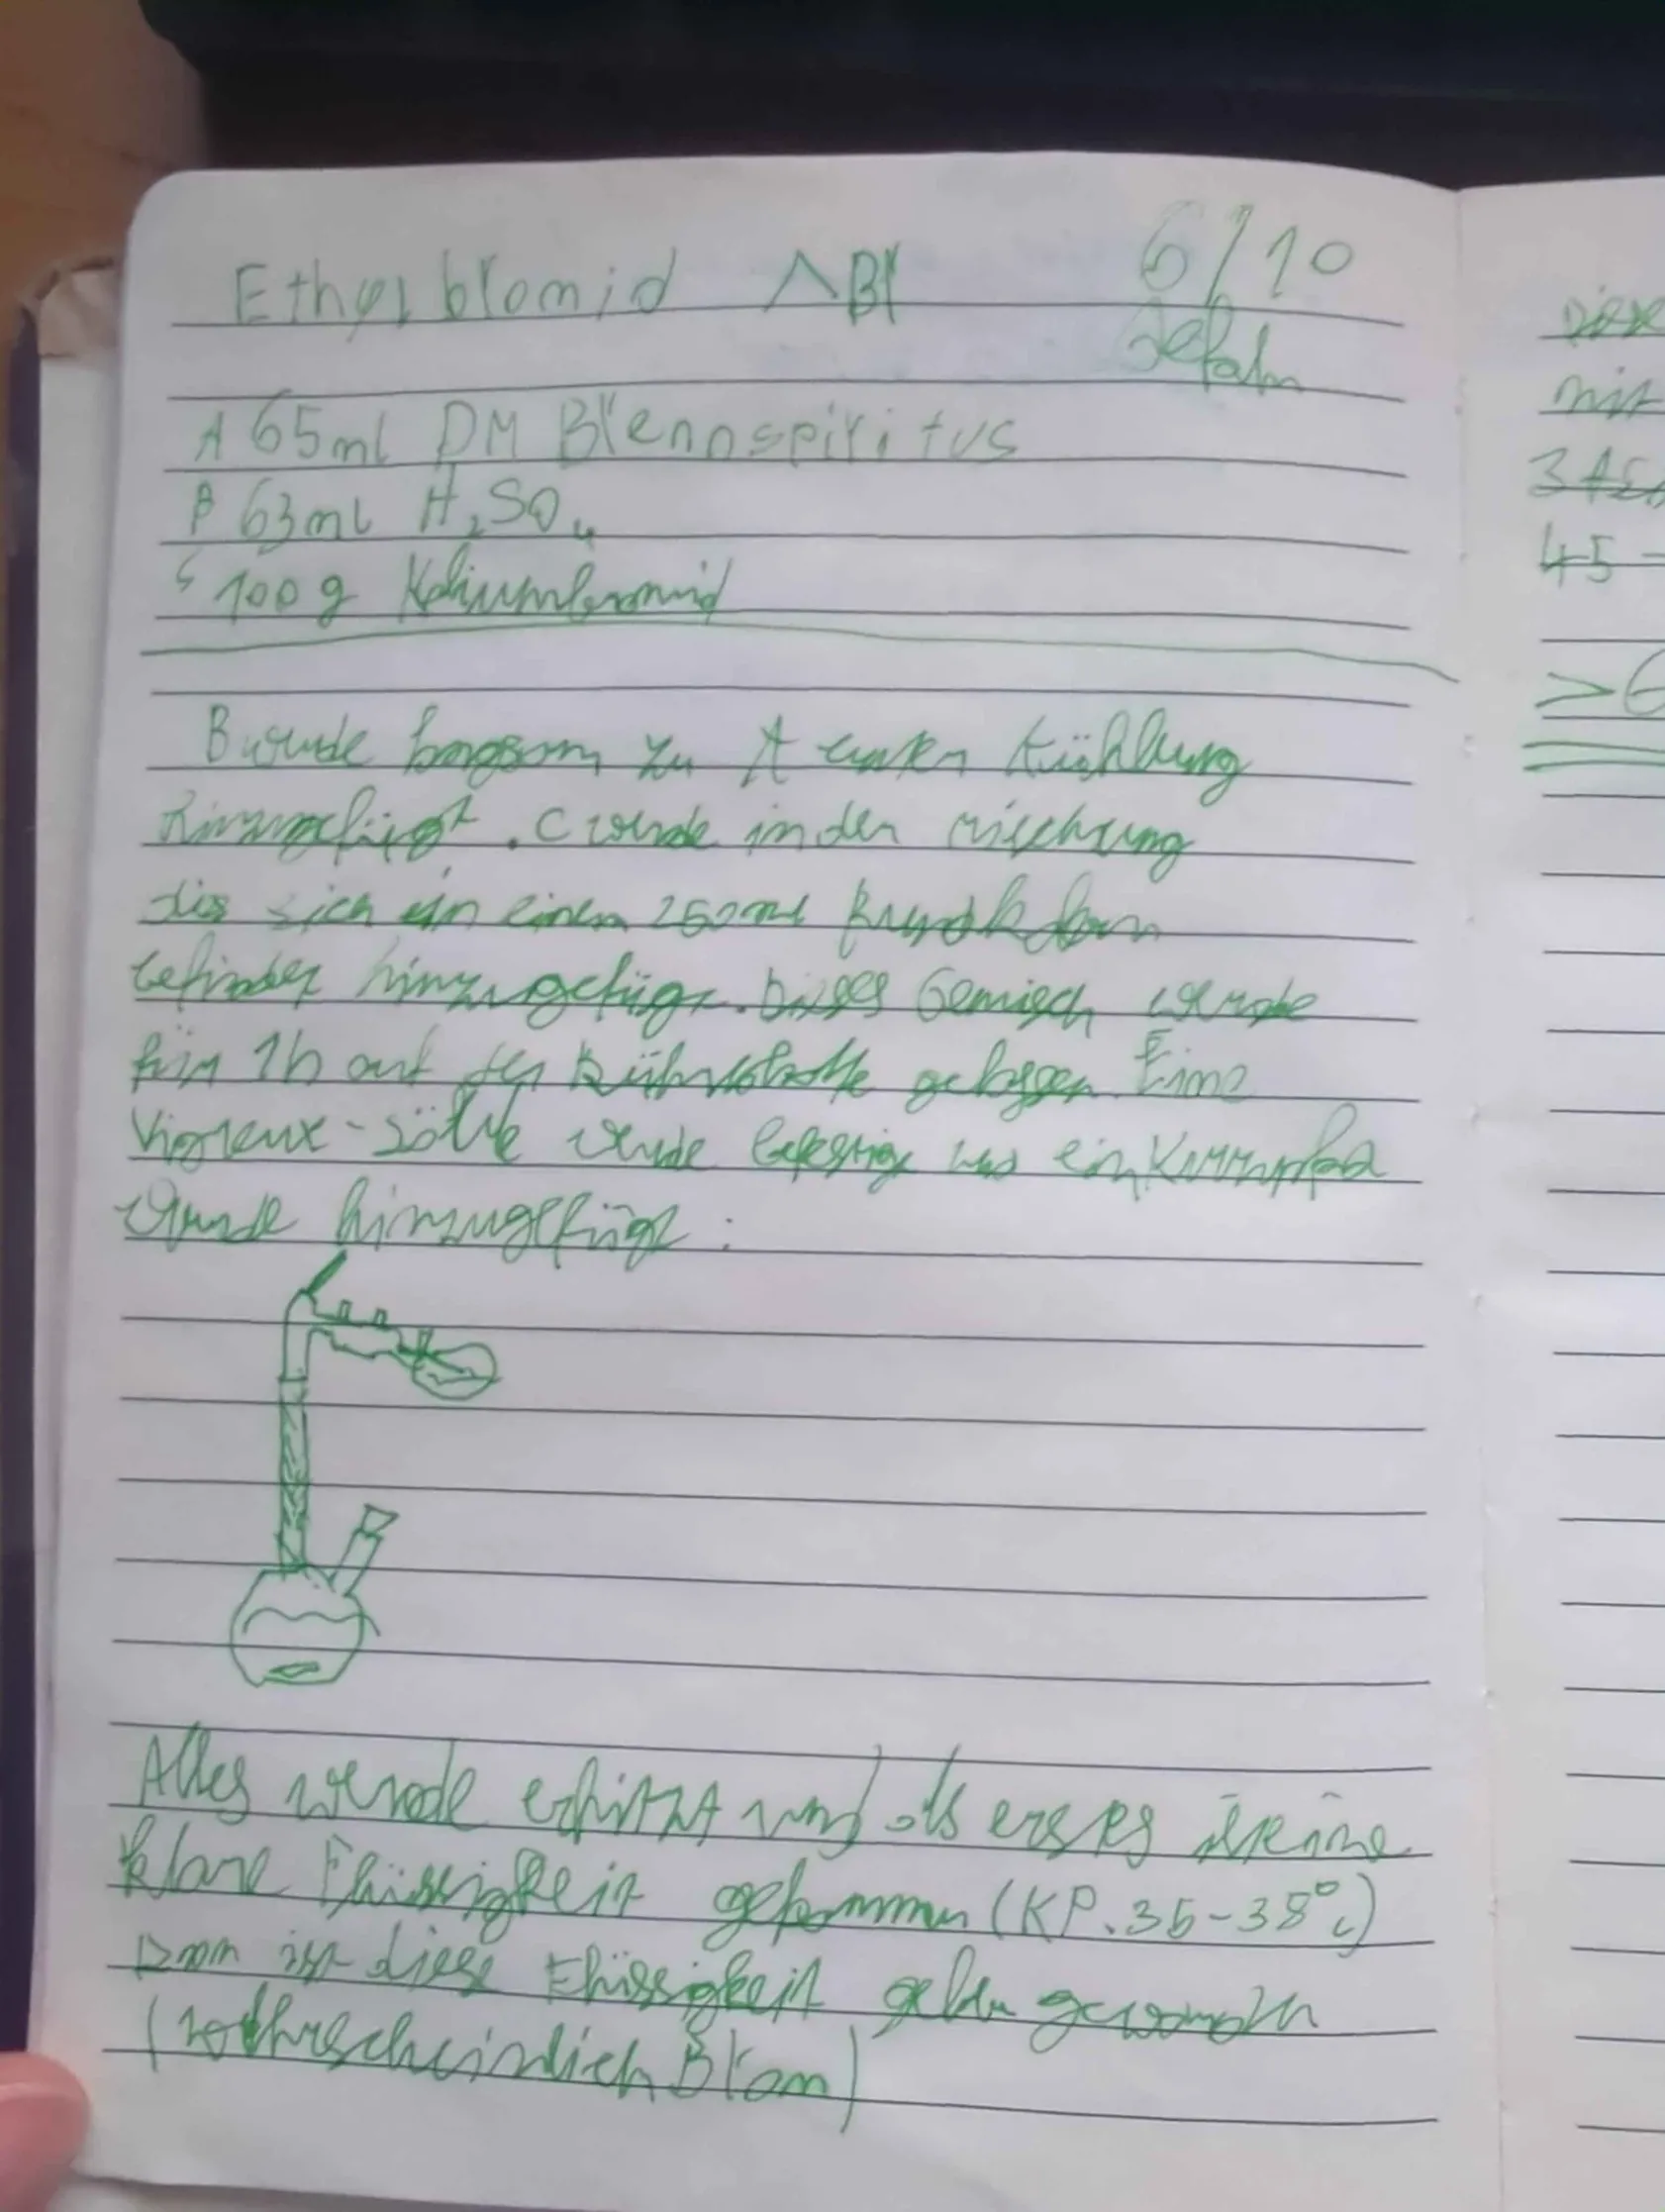 Ethylbromid Br 6/10
Gefahr
A 65ml DM Brennspiritus
B 63ml H₂SO₄
C 100g Kaliumbromid
B wurde langsam zu A unter Kühlung
hinzugefügt. C wurde in der Mischung
die sich in einem 250ml Rundkolben
befindet hinzugefügt. Dieses Gemisch wurde
für 1h auf der Rührplatte gelassen. Eine
Vigreux-Säule wurde befestigt und ein
wurde hinzugefügt:
Alles wurde erhitzt und als erstes ist eine
klare Flüssigkeit gekommen (KP. 35-38°C)
Dann ist diese Flüssigkeit gelber geworden
(wahrscheinlich Brom)
mit
45
>6